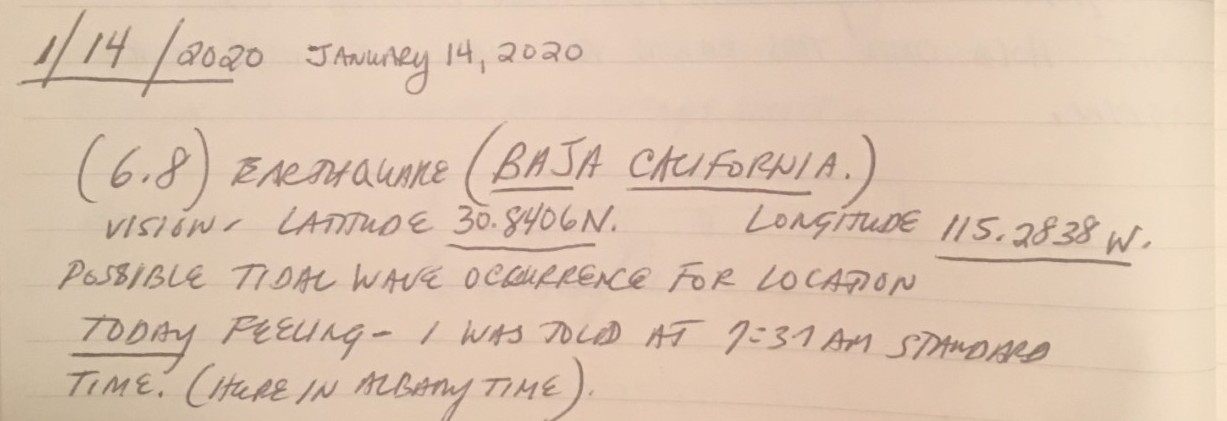 1/14/2020 JANUARY 14, 2020
(6.8) EARTHQUAKE (BAJA CALIFORNIA.)
VISION- LATITUDE 30.8406N. LONGITUDE 115.2838 W.
POSSIBLE TIDAL WAVE OCCURRENCE FOR LOCATION
TODAY FEELING- I WAS TOLD AT AM STANDARD
TIME. (HERE IN ALBANY TIME).